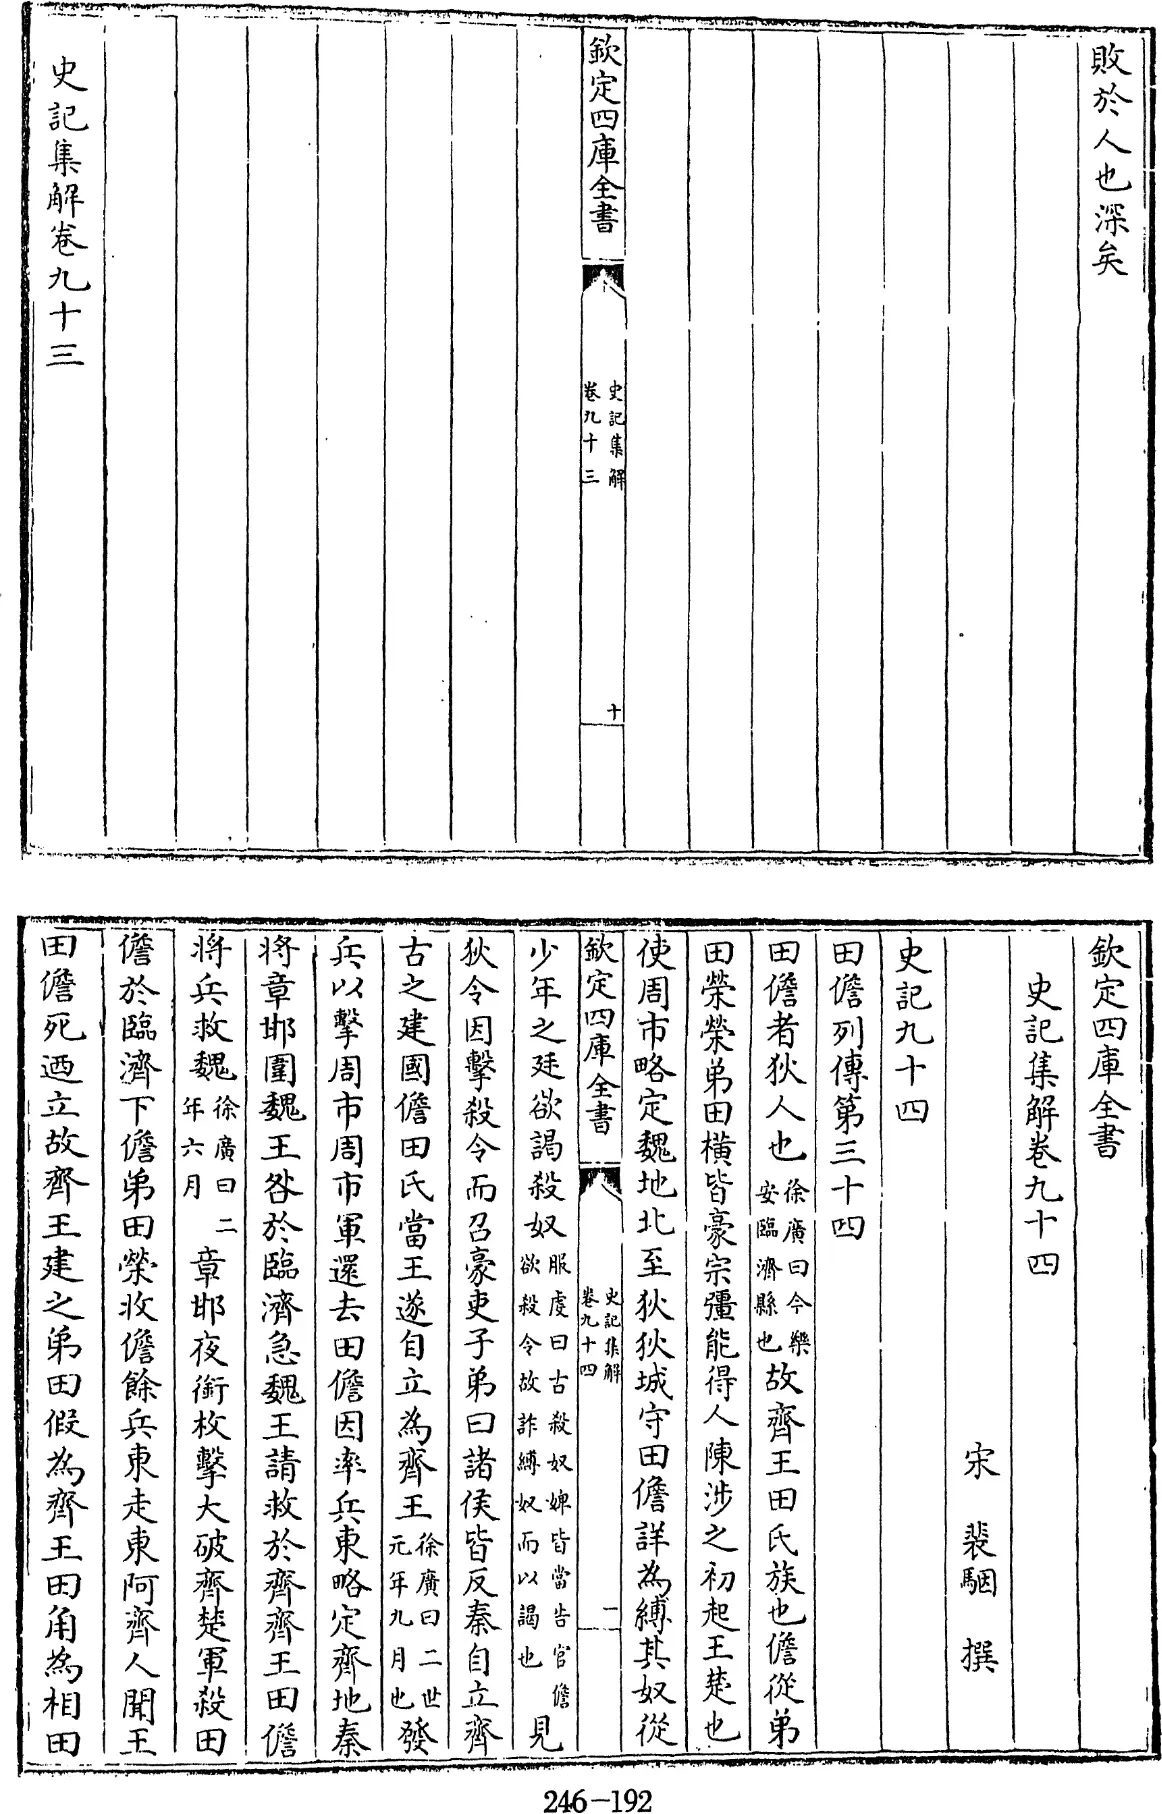 敗於人也深矣
欽定四庫全書
史記集解
卷九十三
十
史記集解卷九十三
欽定四庫全書
史記集解卷九十四
宋 裴駰 撰
史記九十四
田儋列傳第三十四
田儋者狄人也徐廣曰今樂安臨濟縣也故齊王田氏族也儋從弟
田榮榮弟田橫皆豪宗彊能得人陳涉之初起王楚也
使周市略定魏地北至狄狄城守田儋詳為縛其奴從
欽定四庫全書
史記集解
卷九十四
一
少年之廷欲謁殺奴服虔曰古殺奴婢皆當告官儋欲殺令故詐縛奴而以謁也見
狄令因擊殺令而召豪吏子弟曰諸侯皆反秦自立齊
古之建國儋田氏當王遂自立為齊王徐廣曰二世元年九月也發
兵以擊周市周市軍還去田儋因率兵東略定齊地秦
將章邯圍魏王咎於臨濟急魏王請救於齊齊王田儋
將兵救魏徐廣曰二年六月章邯夜銜枚擊大破齊楚軍殺田
儋於臨濟下儋弟田榮收儋餘兵東走東阿齊人聞王
田儋死迺立故齊王建之弟田假為齊王田角為相田
246-192